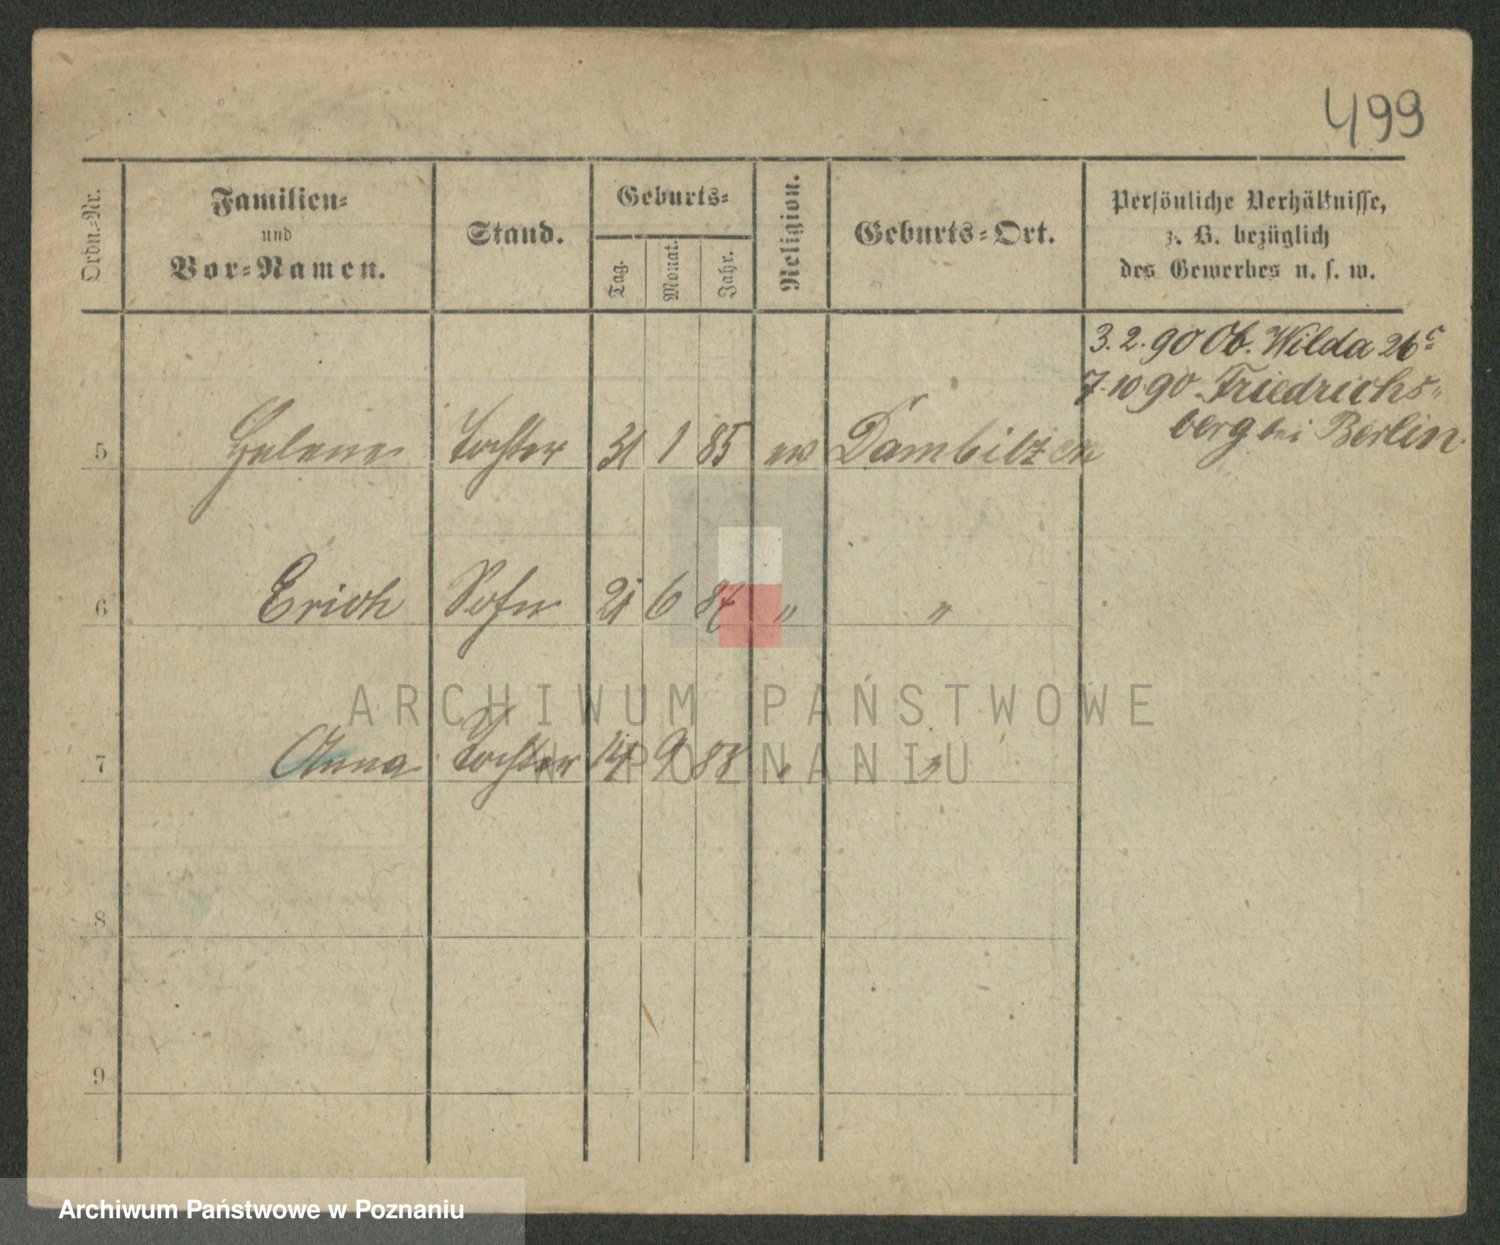 499
Ordn.-Nr.
Familien-
und
Vor-Namen.
Stand.
Geburts-
Tag.
Monat.
Jahr.
Religion.
Geburts-Ort.
Persönliche Verhältnisse,
z. B. bezüglich
des Gewerbes u. s. w.
3. 2. 90 Ob. Wilda 26c
7. 10 90 Friedrichs-
berg bei Berlin.
5 Helene Tochter 31 1 85 ev Dambitzen
6 Erich Sohn 21 6 87 " "
7 Anna Tochter 14 9 88 " "
8
9
ARCHIWUM PAŃSTWOWE
W POZNANIU
Archiwum Państwowe w Poznaniu